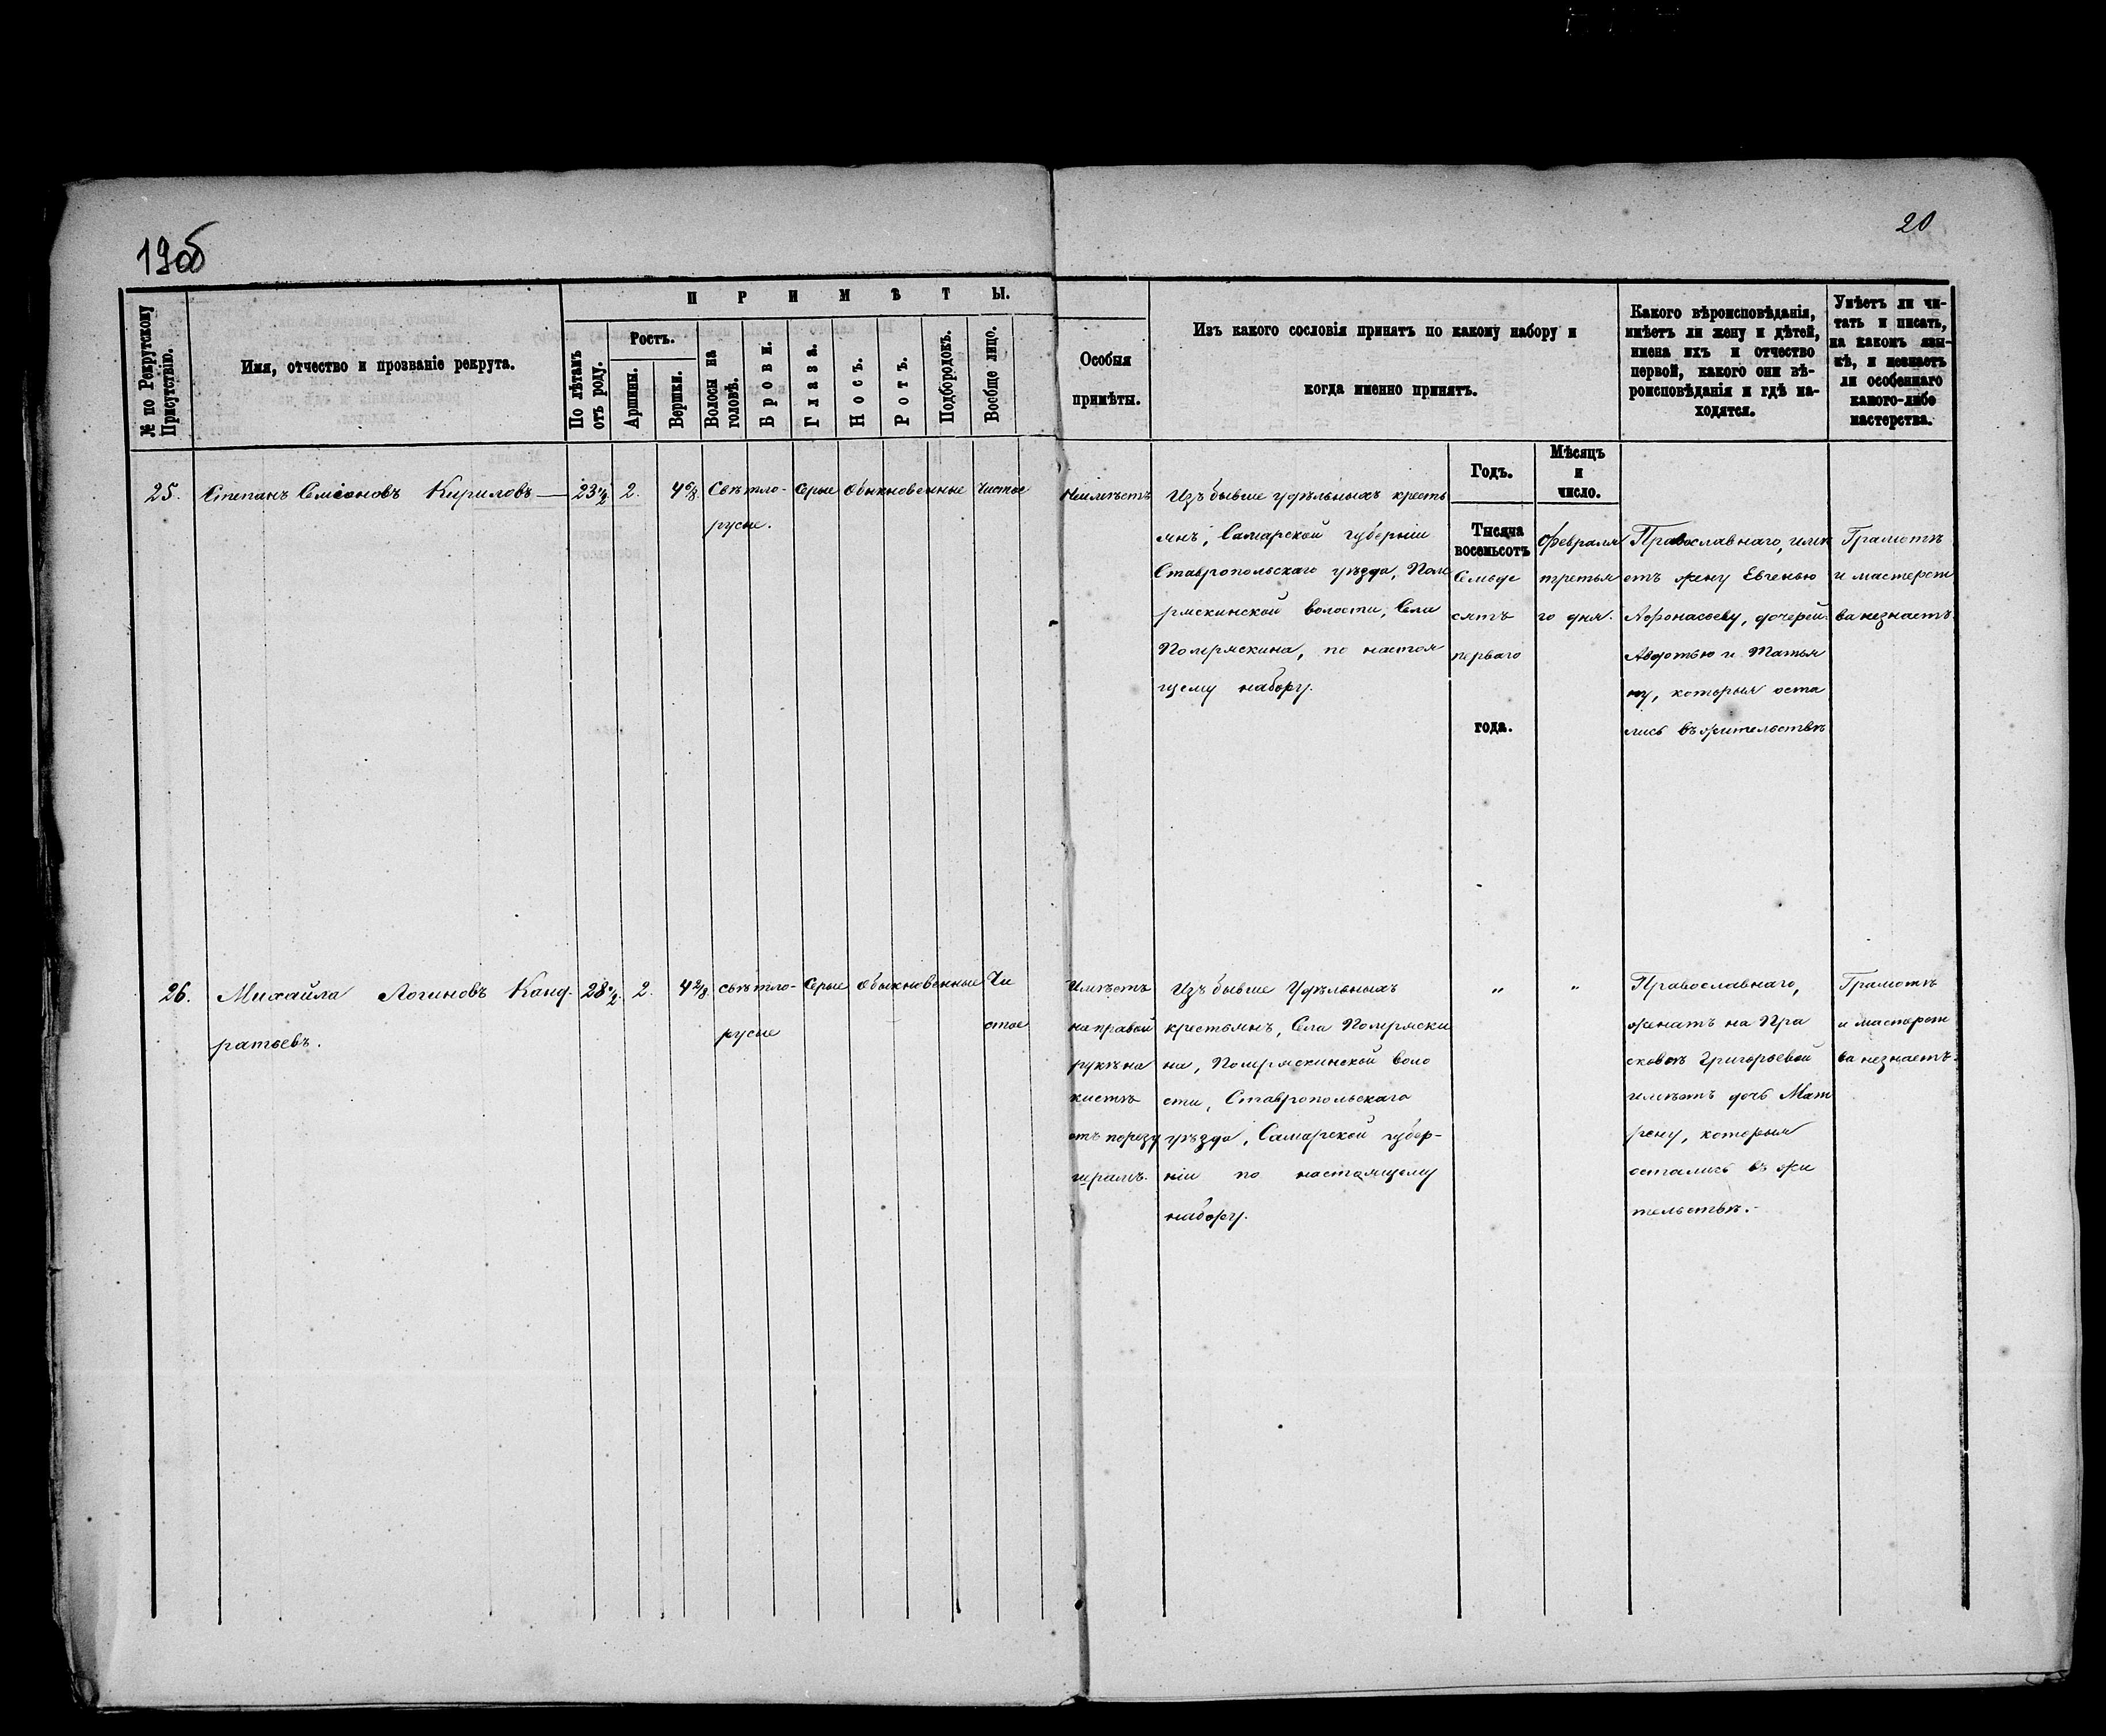 19об
20
П Р И М Ѣ Т Ы.
№ по Рекрутскому
Присутствію.
Имя, отчество и прозваніе рекрута.
По лѣтамъ
отъ роду.
Ростъ.
Аршины.
Вершки.
Волосы на
головѣ.
Брови.
Глаза.
Носъ.
Ротъ.
Подбородокъ.
Вообще лицо.
Особыя
примѣты.
Изъ какого сословія принятъ по какому набору и
когда именно принятъ.
Годъ.
Мѣсяцъ
и
число.
Какого вѣроисповѣданія,
имѣетъ ли жену и дѣтей,
имена ихъ и отчество
первой, какого они вѣ-
роисповѣданія и гдѣ на-
ходятся.
Умѣетъ ли чи-
тать и писать,
на какомъ язы-
кѣ, и незнаетъ
ли особеннаго
какого-либо
мастерства.
25.
Степанъ Семіоновъ Кириловъ
23
2.
4 6/8
Свѣтло-
русые.
Серые
Обыкновенные
Чистое
Неимѣетъ
Изъ бывше удѣльныхъ кресть
янъ, Самарской губерніи
Ставропольскаго уѣзда, Поме
ряскинской волости, Села
Помряскина, по настоя
щему набору.
Тысяча
восемьсотъ
Семьде
сятъ
перваго
года.
Февраля
третья
го дня.
Православнаго, имѣ
етъ жену Евгенью
Афонасьеву, дочерей:
Авдотью и Татья
ну, которыя оста
лись въ жительствѣ
Грамотѣ
и мастерст
ва незнаетъ
26.
Михайла Логиновъ Конд-
ратьевъ.
28
2.
4 2/8
свѣтло-
русые
Серые
Обыкновенные
Чи
стое
Имѣетъ
на правой
рукѣ на
кистѣ
отъ порезу
шрамъ.
Изъ бывше Удѣльныхъ
крестьянъ, Села Помряски
на, Помряскинской воло
сти, Ставропольскаго
уѣзда, Самарской губер-
ніи по настоящему
набору.
"
"
Православнаго,
женатъ на Пра
сковьѣ Григорьевой
имѣетъ дочь Мат
рену, которыя
остались въ жи
тельствѣ.-
Грамотѣ
и мастерст
ва незнаетъ.